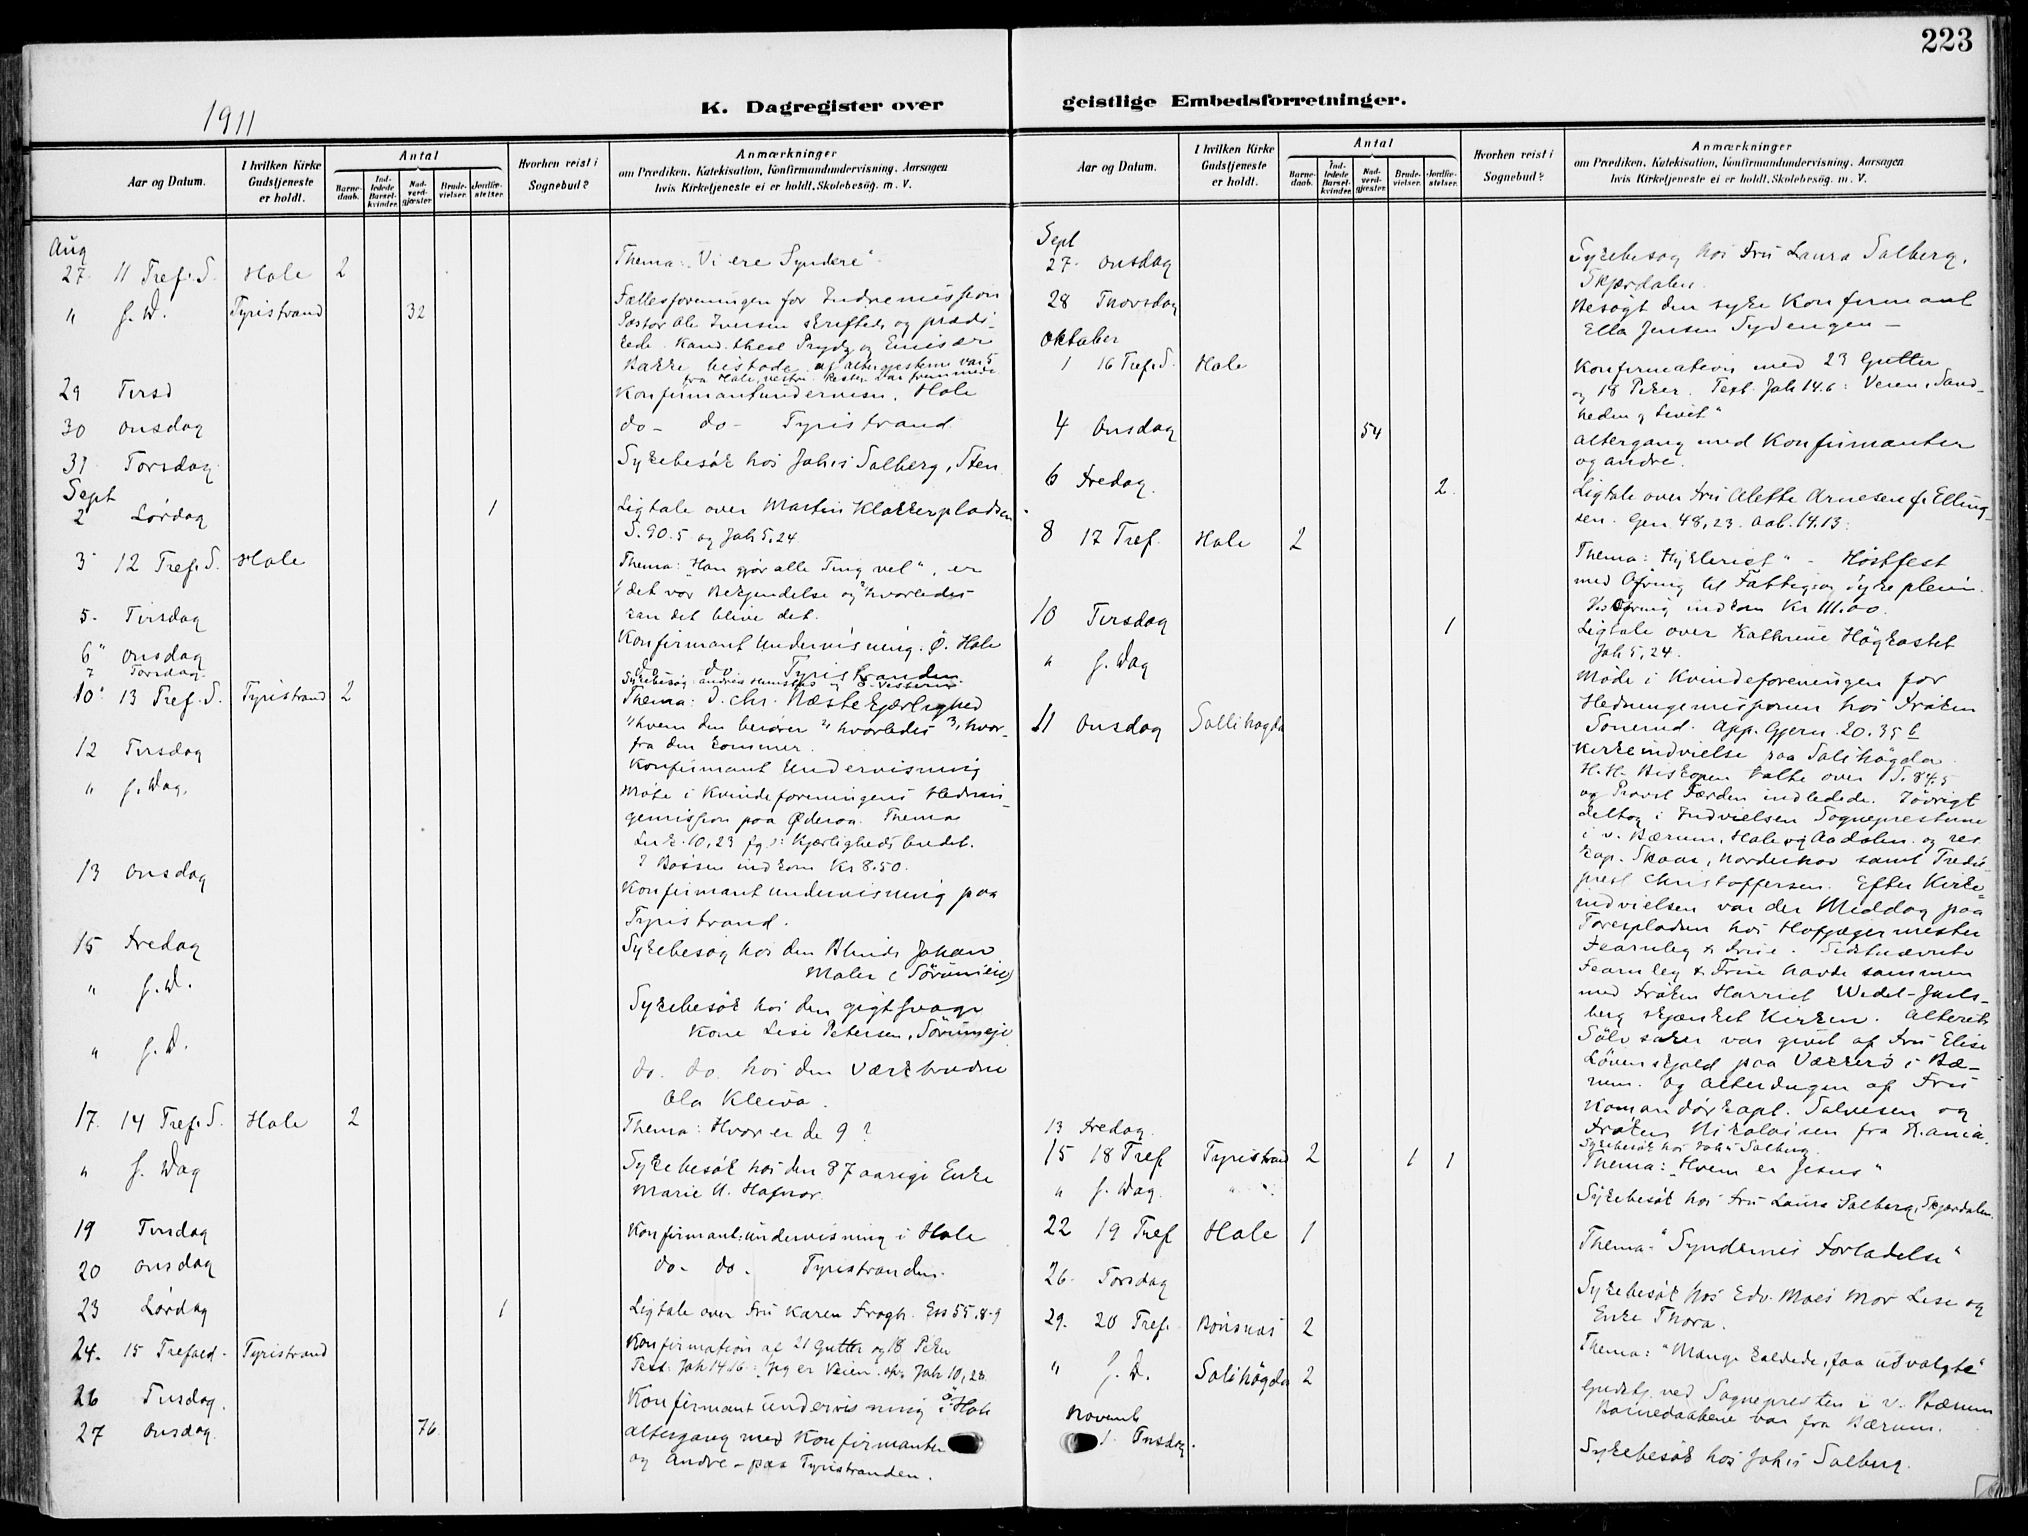 223
1911
K. Dagregister over
geistlige Embedsforretninger.
Aar og Datum.
I hvilken Kirke Gudstjeneste er holdt.
Antal
Barne-daab.
Ind-ledede Barsel-kvinder.
Nad-verd-gjæster.
Brude-vielser.
Jordfæ-stelser.
Hvorhen reist i Sognebud?
Anmærkninger
om Prædiken, Katekisation, Konfirmandundervisning, Aarsagen
hvis Kirketjeneste ei er holdt, Skolebesøg. m. V.
Aug
27. 11 Tref. S. Hole 2 Thema: "Vi ere Syndere"
" s. D. Tyristrand 32 Fællesforeningen for Indremission
Pastor Ole Iversen skriftede og prædi-
kede. Kand. theol Prydz og Emisær
Bakke bistode af altergjesterne var 5
fra Hole, vestre. Resten var fremmede
29 Tirsd Konfirmantundervisn. Hole
30 onsdag do - do - Tyristrand
31 Torsdag Sykebesøk hos Johs Solberg, Sten
Sept
2 Lørdag 1 Ligtale over Martin Klokkerpladsen
S. 90.5 og Joh 5,24
3 12 Tref. S. Hole Thema: "Han gjør alle Ting vel", er
1 det vor Bekjendelse og 2 hvorledes
kan det blive det.
5. Tirsdag Konfirmant Undervisning. Ø. Hole
6 onsdag do do Tyristranden
7 Torsdag Sykebesøg
10. 13 Tref. S. Tyristrand 2 Thema: D. chr. Næstekjærlighed
1) hvem den berører 2) hvorledes 3) hvor-
fra den kommer.
12 Tirsdag Konfirmant Undervisning
" s. Dag. Møte i Kvindeforeningens Hednin-
gemission paa Øderaa. Thema
Luk. 10,23 fg: Kjærligheds budet.
I Bøssen indkom Kr 8.50.
13 onsdag Konfirmantundervisning paa
Tyristrand.
15 Fredag Sykebesøg hos den Blinde Johan
Maler (Sørumeie)
" s. D. Sykebesøk hos den gigtsvage
Kone Lise Petersen, Sørumeje
" s. D. do. do. hos den værkbrudne
Ola Kleiva.
17. 14 Tref. S. Hole 2 Thema: Hvor er de 9?
" s. Dag Sykebesøk hos den 87 aarige Enke
Marie U. Hafnor.
19 Tirsdag Konfirmantundervisning i Hole
20 onsdag do - do - Tyristranden.
23 Lørdag 1 Ligtale over Fru Karen Frogh. Ess 55.8-9
24. 15 Trefold- Tyristrand Konfirmation af 21 Gutter og 18 Piker
Text Joh 14 16: Jeg er Veien. Joh 10,28
26 Tirsdag. Konfirmant undervisning i Hole
27 onsdag. 76 altergang med Konfirmanter
og Andre - paa Tyristranden.
Aar og Datum.
I hvilken Kirke Gudstjeneste er holdt.
Antal
Barne-daab.
Ind-ledede Barsel-kvinder.
Nad-verd-gjæster.
Brude-vielser.
Jordfæ-stelser.
Hvorhen reist i Sognebud?
Anmærkninger
om Prædiken, Katekisation, Konfirmandundervisning, Aarsagen
hvis Kirketjeneste ei er holdt, Skolebesøg. m. V.
Sept
27. onsdag Sykebesøg hos Fru Laura Solberg,
Skjærdalen.
28 Thorsdag Besøgt den syke Konfirmant
Ella Jensen Sydengen -
Oktober
1 16 Tref. S. Hole Konfirmation med 23 Gutter
og 18 Piker. Text. Joh 14.6: Veien, Sand-
heden og Livet"
4 Onsdag 54 altergang med Konfirmanter
og andre.
6 Fredag. 2. Ligtale over Fru Alette Arnesen f. Elling-
sen. Gen 48,23. Aab. 14.13.
8 17 Tref. Hole 2 Thema: Hykleriet" - Høstfest
med Ofring til Fattig og Sykepleien.
Ved Ofring indkom Kr 111.00.
10 Tirsdag 1 Ligtale over Kathrine Høgkastet
Joh 5,24.
" s. Dag Møde i Kvindeforeningen for
Hedningemissionen hos Frøken
Tonerud. App. Gjern. 20.35 b
11 Onsdag Sollihøgda Kirkeindvielse paa Solihøgda
H. H. Biskopen talte over S. 84.5
og Provst Færden indledede. Iøvrigt
deltog i Indvielsen Sognepresterne
i v. Bærum, Hole og Aadalen. og res
kap. Skaar, Norderhov samt Tredie
prest Christoffersen. Efter Kirke-
indvielsen var der Middag paa
Toresplassen hos Hofjægermester
Fearnley & Frue. Sidstnævnte
Fearnley & Frue havde sammen
med Frøken Harriet Wedel-Jarls-
berg skjænket Kirken. Alterets
Sølvsaker var givet af Fru Elise
Løvenskjold paa Vækkerø i Bæ-
rum. og alterdugen af Fru
Komandørkapt. Salvesen og
Frøken Nikolaisen fra Krania.
13 Fredag. Sykebesøk hos Johs Solberg.
15 18 Tref Tyristrand 2 1 1 Thema: "Hvem er Jesus"
" s. Dag. " " Sykebesøk hos Fru Laura Solberg, Skjærdalen.
22 19 Tref Hole 1 Thema - "Syndernes Forladelse"
26. Torsdag Sykebesøk hos Edv. Moes Mor Lise og
Enke Thora.
29. 20 Tref. Bønsnæs 2 Thema: "Mange kaldede, faa udvalgte"
" s. D. Solihøgda 2 Gudstj. ved Sognepresten i v. Bærum
Barnedaabene var fra Bærum.
Novemb
1. Tirsdag. Sykebesøk hos Johs Solberg.